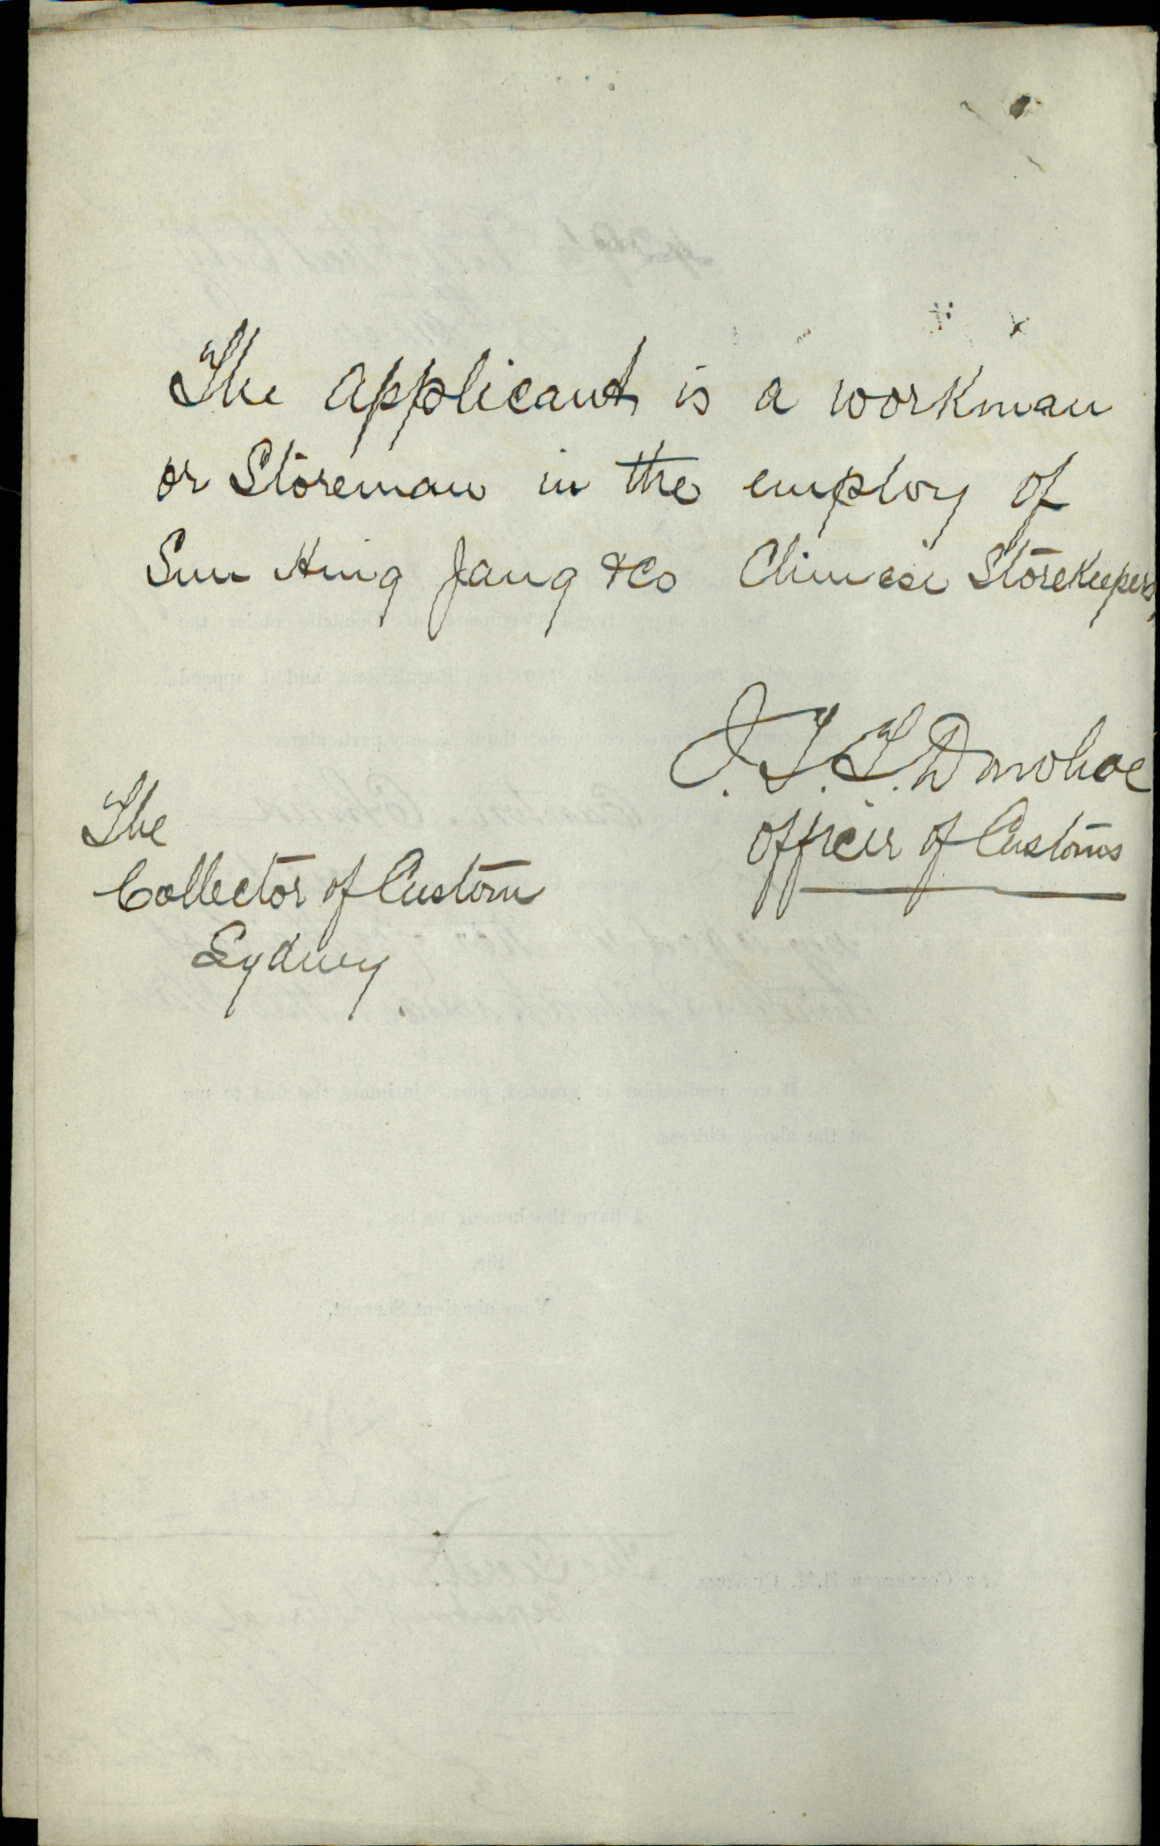 The applicant is a workman
or Storeman in the employ of
Sun Hing Jang & Co Chinese Storekeepers,
J.T.T. Donohoe
Officer of Customs
The
Collector of Custom
Sydney